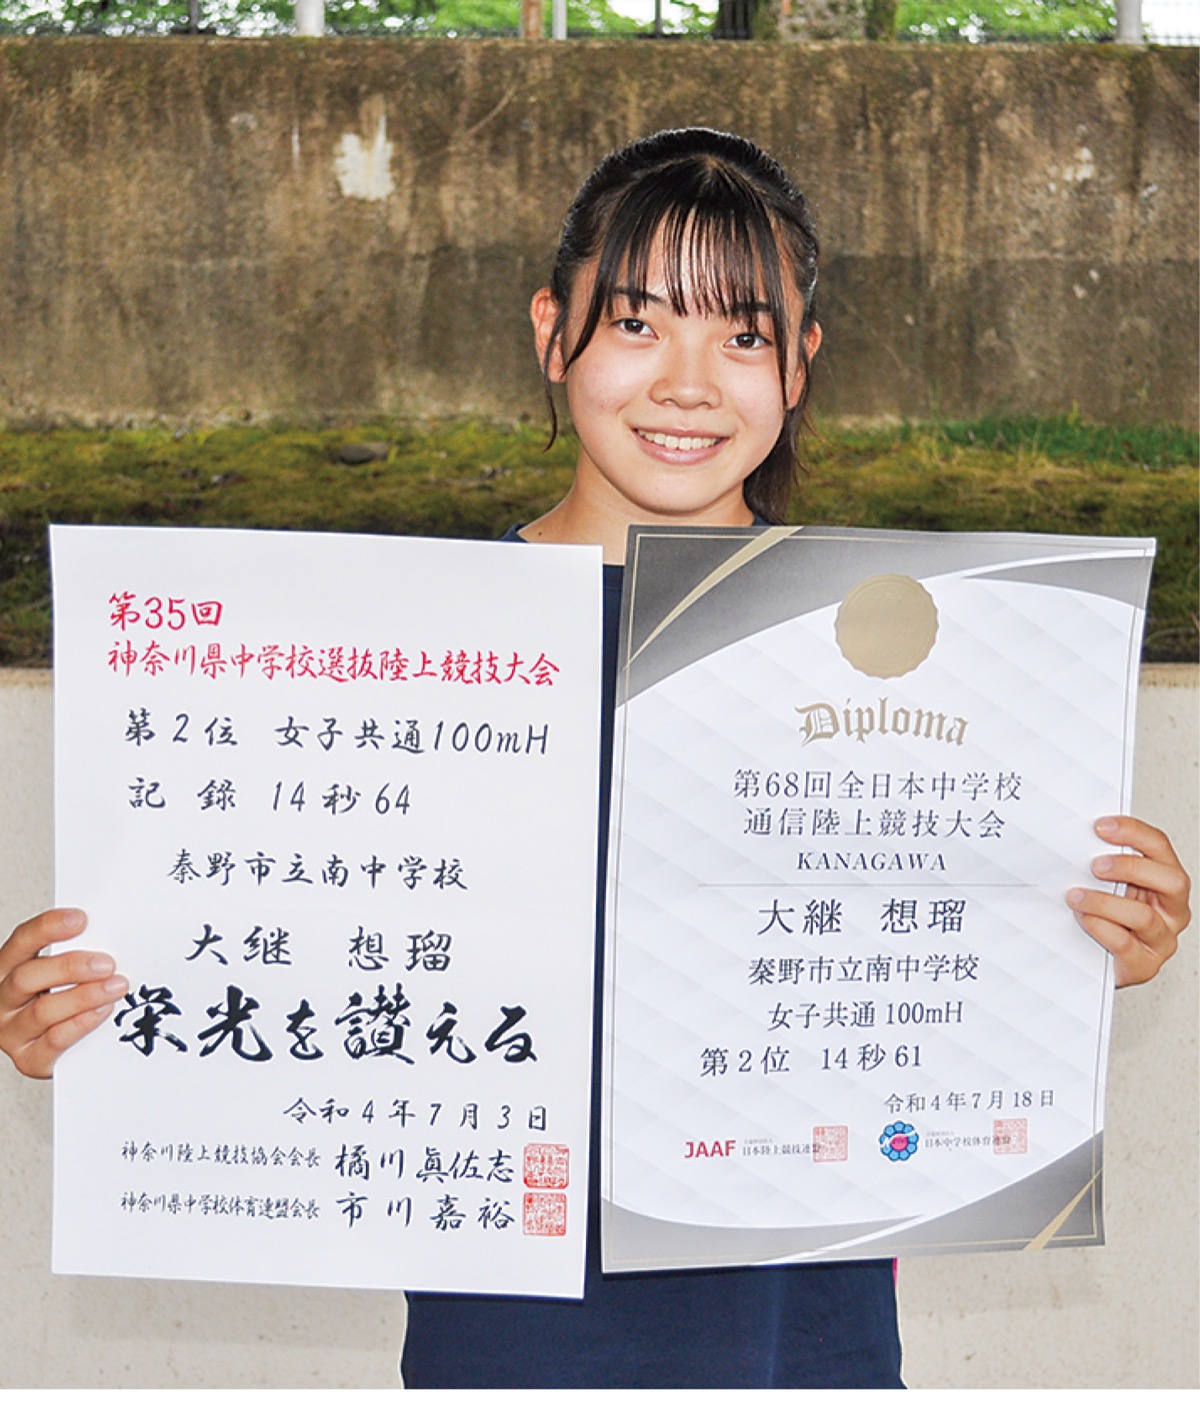 第35回
神奈川県中学校選抜陸上競技大会
第2位 女子共通100mH
記録 14秒64
秦野市立南中学校
大継 想瑠
栄光を讃える
令和4年7月3日
神奈川陸上競技協会会長 橘川眞佐志
神奈川県中学校体育連盟会長 市川嘉裕
Diploma
第68回全日本中学校
通信陸上競技大会
KANAGAWA
大継 想瑠
秦野市立南中学校
女子共通100mH
第2位 14秒61
令和4年7月18日
JAAF 日本陸上競技連盟
日本中学校体育連盟